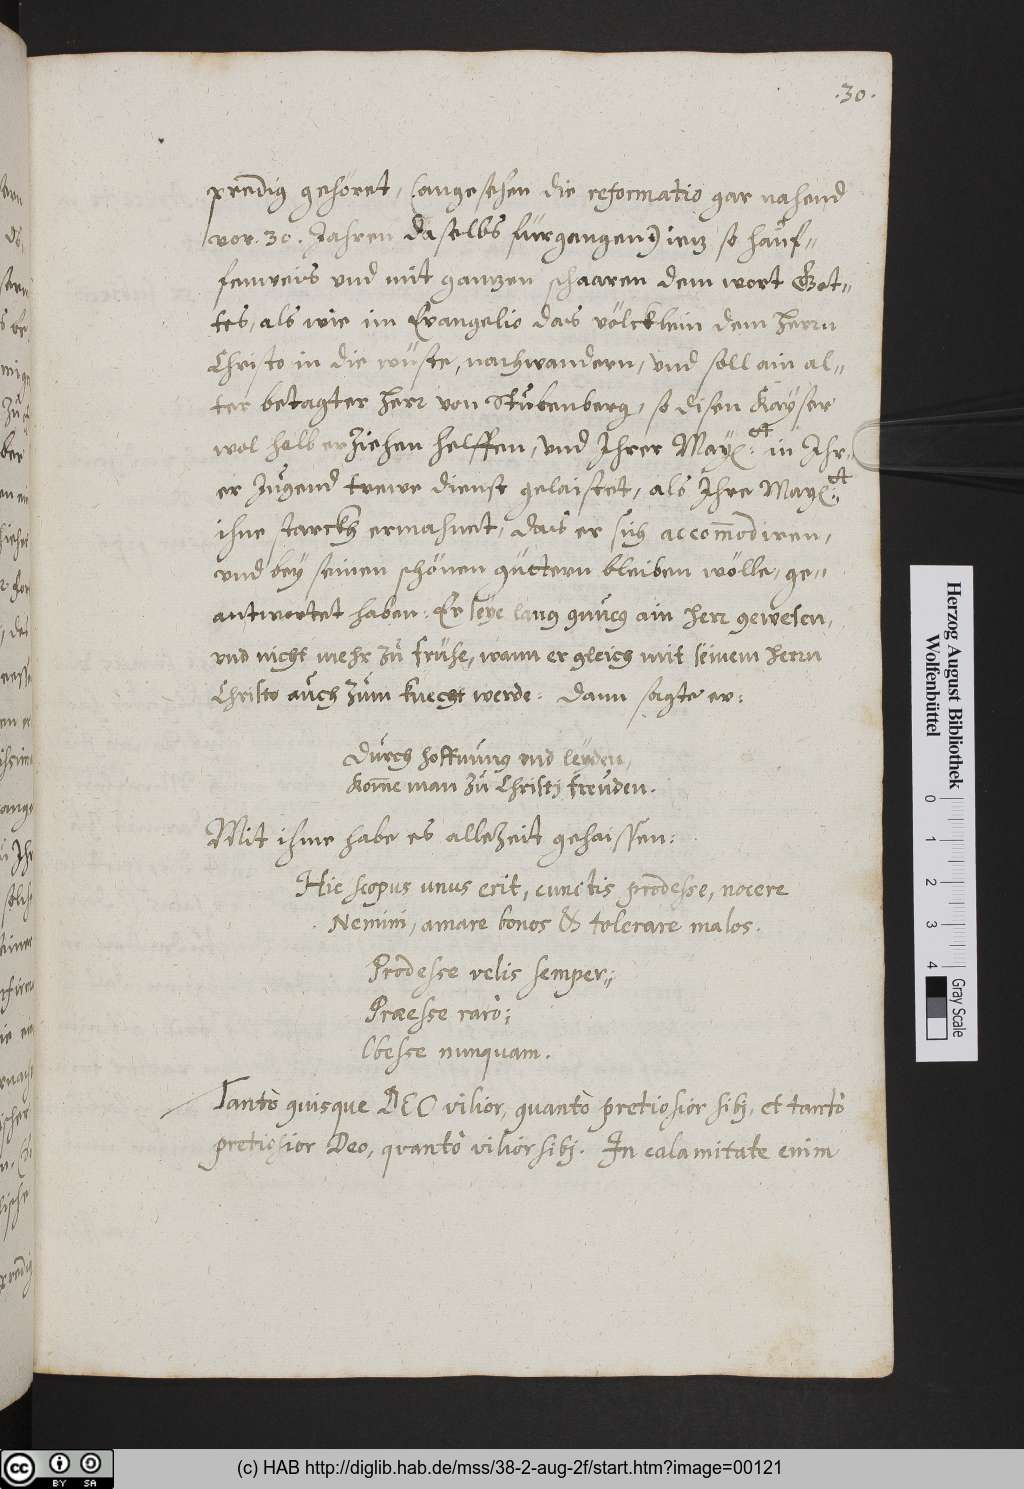 .30.
predig gehöret, (angesehen die reformatio gar nahend
vor .30. Jahren daselbs fürgangen) ietz so hauf-
fenweis vnd mit gantzen schaaren dem wort Got-
tes, als wie im Evangelio das völcklein dem Herrn
Christo in die wüste, nachwandern, vnd soll ain al-
ter betagter Herr von Stubenberg, so disen Kayser
wol halb erziehen helffen, vnd Ihrer May: in Ihr-
er Jugend trewe dienst gelaistet, als Ihre May:
ihne starckh ermahnet, das er sich accom̄odiren,
vnd bey seinen schönen güttern bleiben wölle, ge-
antwortet haben: Er seye lang gnueg ain Herr gewesen,
vnd nicht mehr zu fruhe, wann er gleich mit seinem Herrn
Christo auch zum knecht werde. Dann sagte er:
Durch hoffnung vnd leyden,
Kom̄e man zu Christi freuden.
Mit ihme habe es allezeit gehaissen:
Hic scopus unus erit, cunctis prodesse, nocere
Nemini, amare bonos & tolerare malos.
Prodesse velis semper;
Praeesse raro;
Obesse nunquam.
Tantò quisque DEO vilior, quantò pretiosior sibj, et tantò
pretiosior Deo, qvantò vilior sibj. In calamitate enim
Herzog August Bibliothek
Wolfenbüttel
0 1 2 3 4
Gray Scale
cc BY SA
(c) HAB http://diglib.hab.de/mss/38-2-aug-2f/start.htm?image=00121